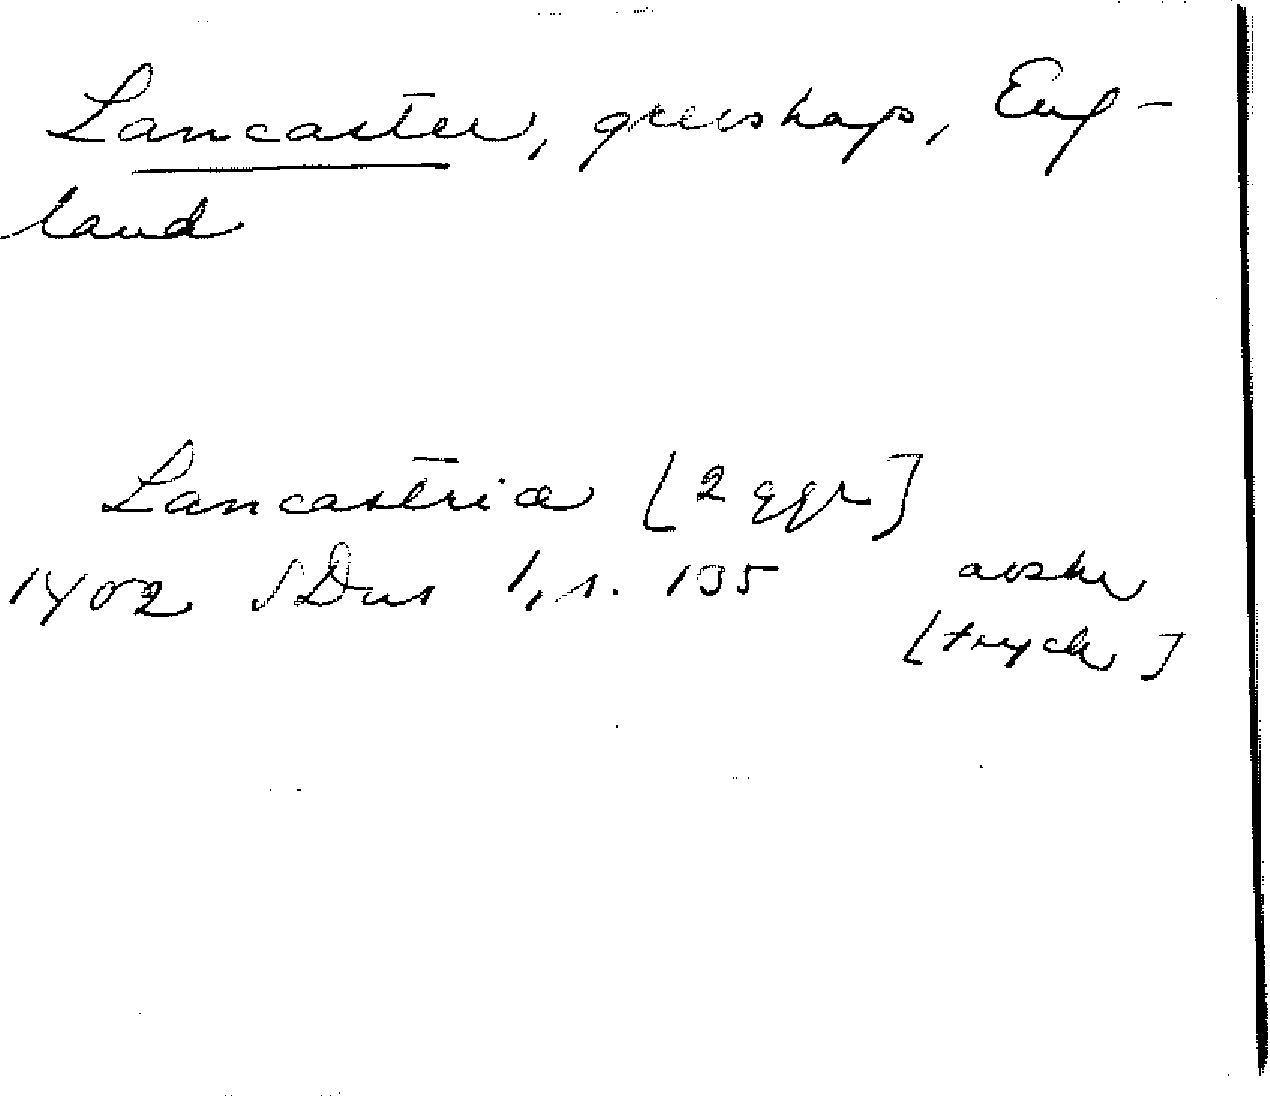 Lancaster, grevskap, Eng-
land
Lancastriæ [2 ggr]
1402 SDns 1, s. 135 avskr
[tryck]